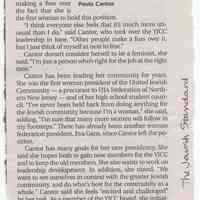 making a fuss over
the fact that she is
the first woman to hold this position.
Paula Cantor
"I think everyone else feels that it's much more un-
usual than I do," said Cantor, who took over the YJCC
leadership in June. "Other people make a fuss over it,
but I just think of myself as next in line."
Cantor doesn't consider herself to be a feminist, she
said. "I'm just a person who's right for the job at the right
time."
Cantor has been leading her community for years.
She was the first woman president of the United Jewish
Community — a precursor to UJA Federation of North-
ern New Jersey — and of her high school student coun-
cil. "I've never been held back from doing anything for
the Jewish community because I'm a woman," she said,
adding, "I'm sure that many more women will follow in
my footsteps." There has already been another woman
federation president, Eva Gans, since Cantor left the po-
sition.
Cantor has many goals for her new presidency. She
said she hopes both to gain new members for the YJCC
and to keep the old members. She also wants to work on
leadership development. In addition, she noted, "We
want to see ourselves in context with the greater Jewish
community, and do what's best for the community as a
whole." Cantor said she feels "excited and challenged"
by her task. As a member of the YJCC board, she
The Jewish Standard